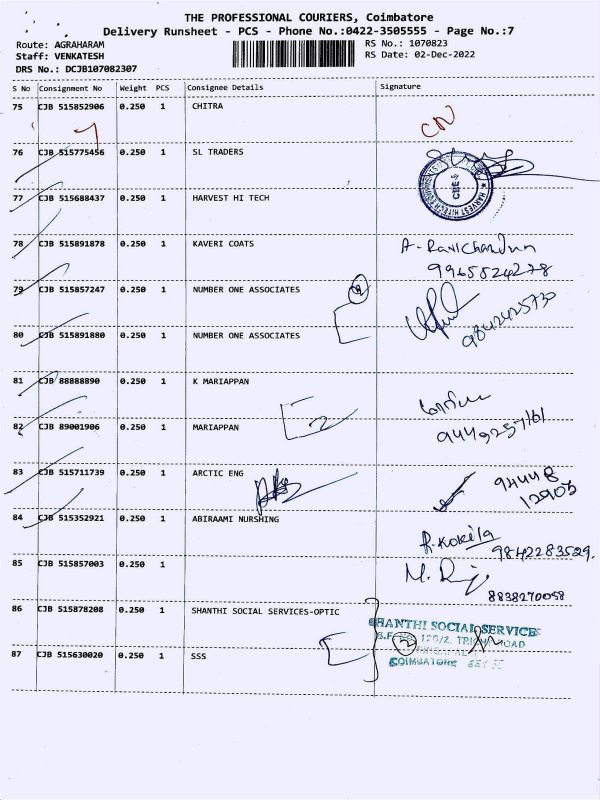 THE PROFESSIONAL COURIERS, Coimbatore
Delivery Runsheet - PCS - Phone No.:0422-3505555 - Page No.:7
Route: AGRAHARAM RS No.: 1070823
Staff: VENKATESH RS Date: 02-Dec-2022
DRS No.: DCJB107082307
S No Consignment No Weight PCS Consignee Details Signature
75 CJB 515852906 0.250 1 CHITRA
CN
76 CJB 515775456 0.250 1 SL TRADERS
77 CJB 515688437 0.250 1 HARVEST HI TECH
CBE
78 CJB 515891878 0.250 1 KAVERI COATS A-Ravichandran
9965524278
79 CJB 515857247 0.250 1 NUMBER ONE ASSOCIATES
9842425730
80 CJB 515891880 0.250 1 NUMBER ONE ASSOCIATES
81 CJB 88888890 0.250 1 K MARIAPPAN
82 CJB 89001906 0.250 1 MARIAPPAN 2
83 CJB 515711739 0.250 1 ARCTIC ENG 94448
12903
84 CJB 515352921 0.250 1 ABIRAAMI NURSHING
R.Kokila
9842283529.
85 CJB 515857003 0.250 1
8838270058
86 CJB 515878208 0.250 1 SHANTHI SOCIAL SERVICES-OPTIC
SHANTHI SOCIAL SERVICES
87 CJB 515630020 0.250 1 SSS
COIMBATORE